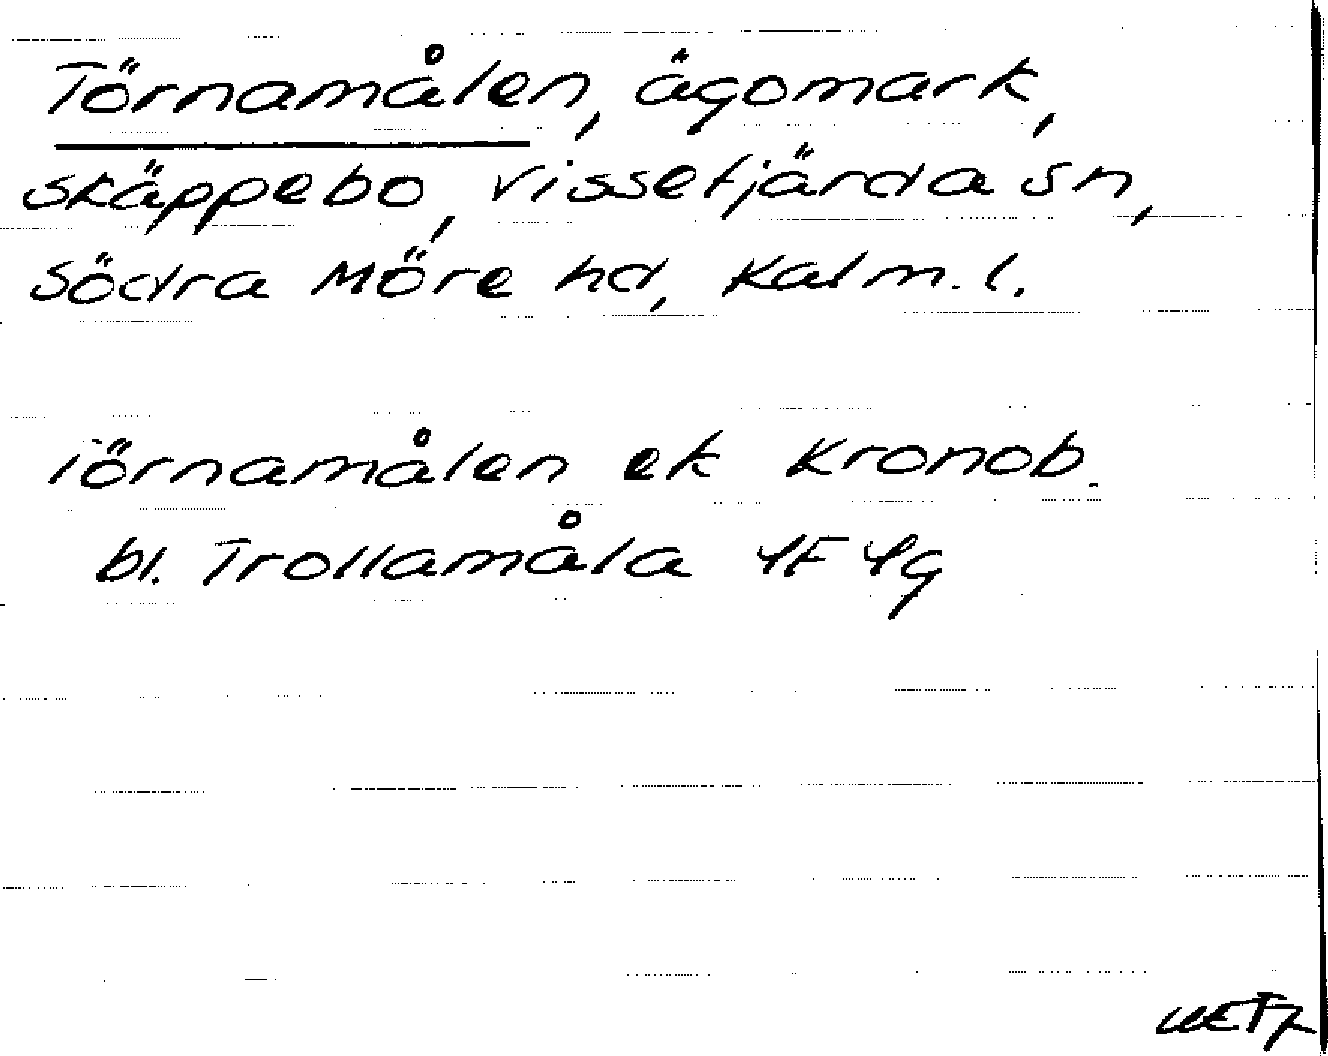 Törnamålen, ägomark,
skäppebo, vissefjärda sn,
södra Möre hd, Kalm. l.
Törnamålen ek Kronob.
bl. Trollamåla 4F 4g